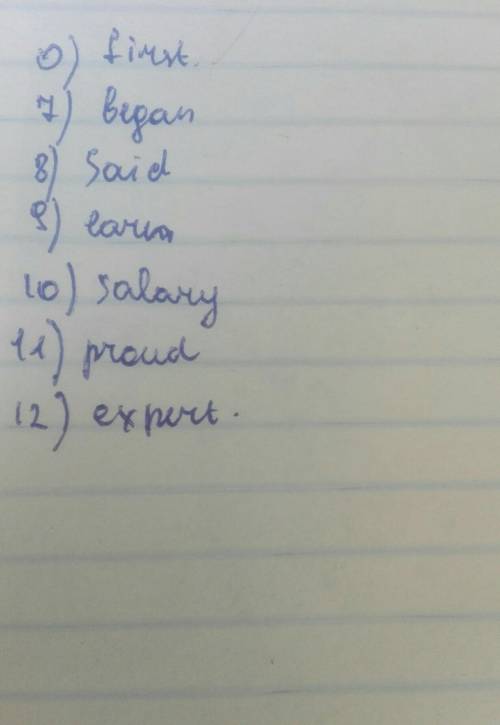 0) first.
7) began
8) Said
9) earn
10) salary
11) proud
12) expert.